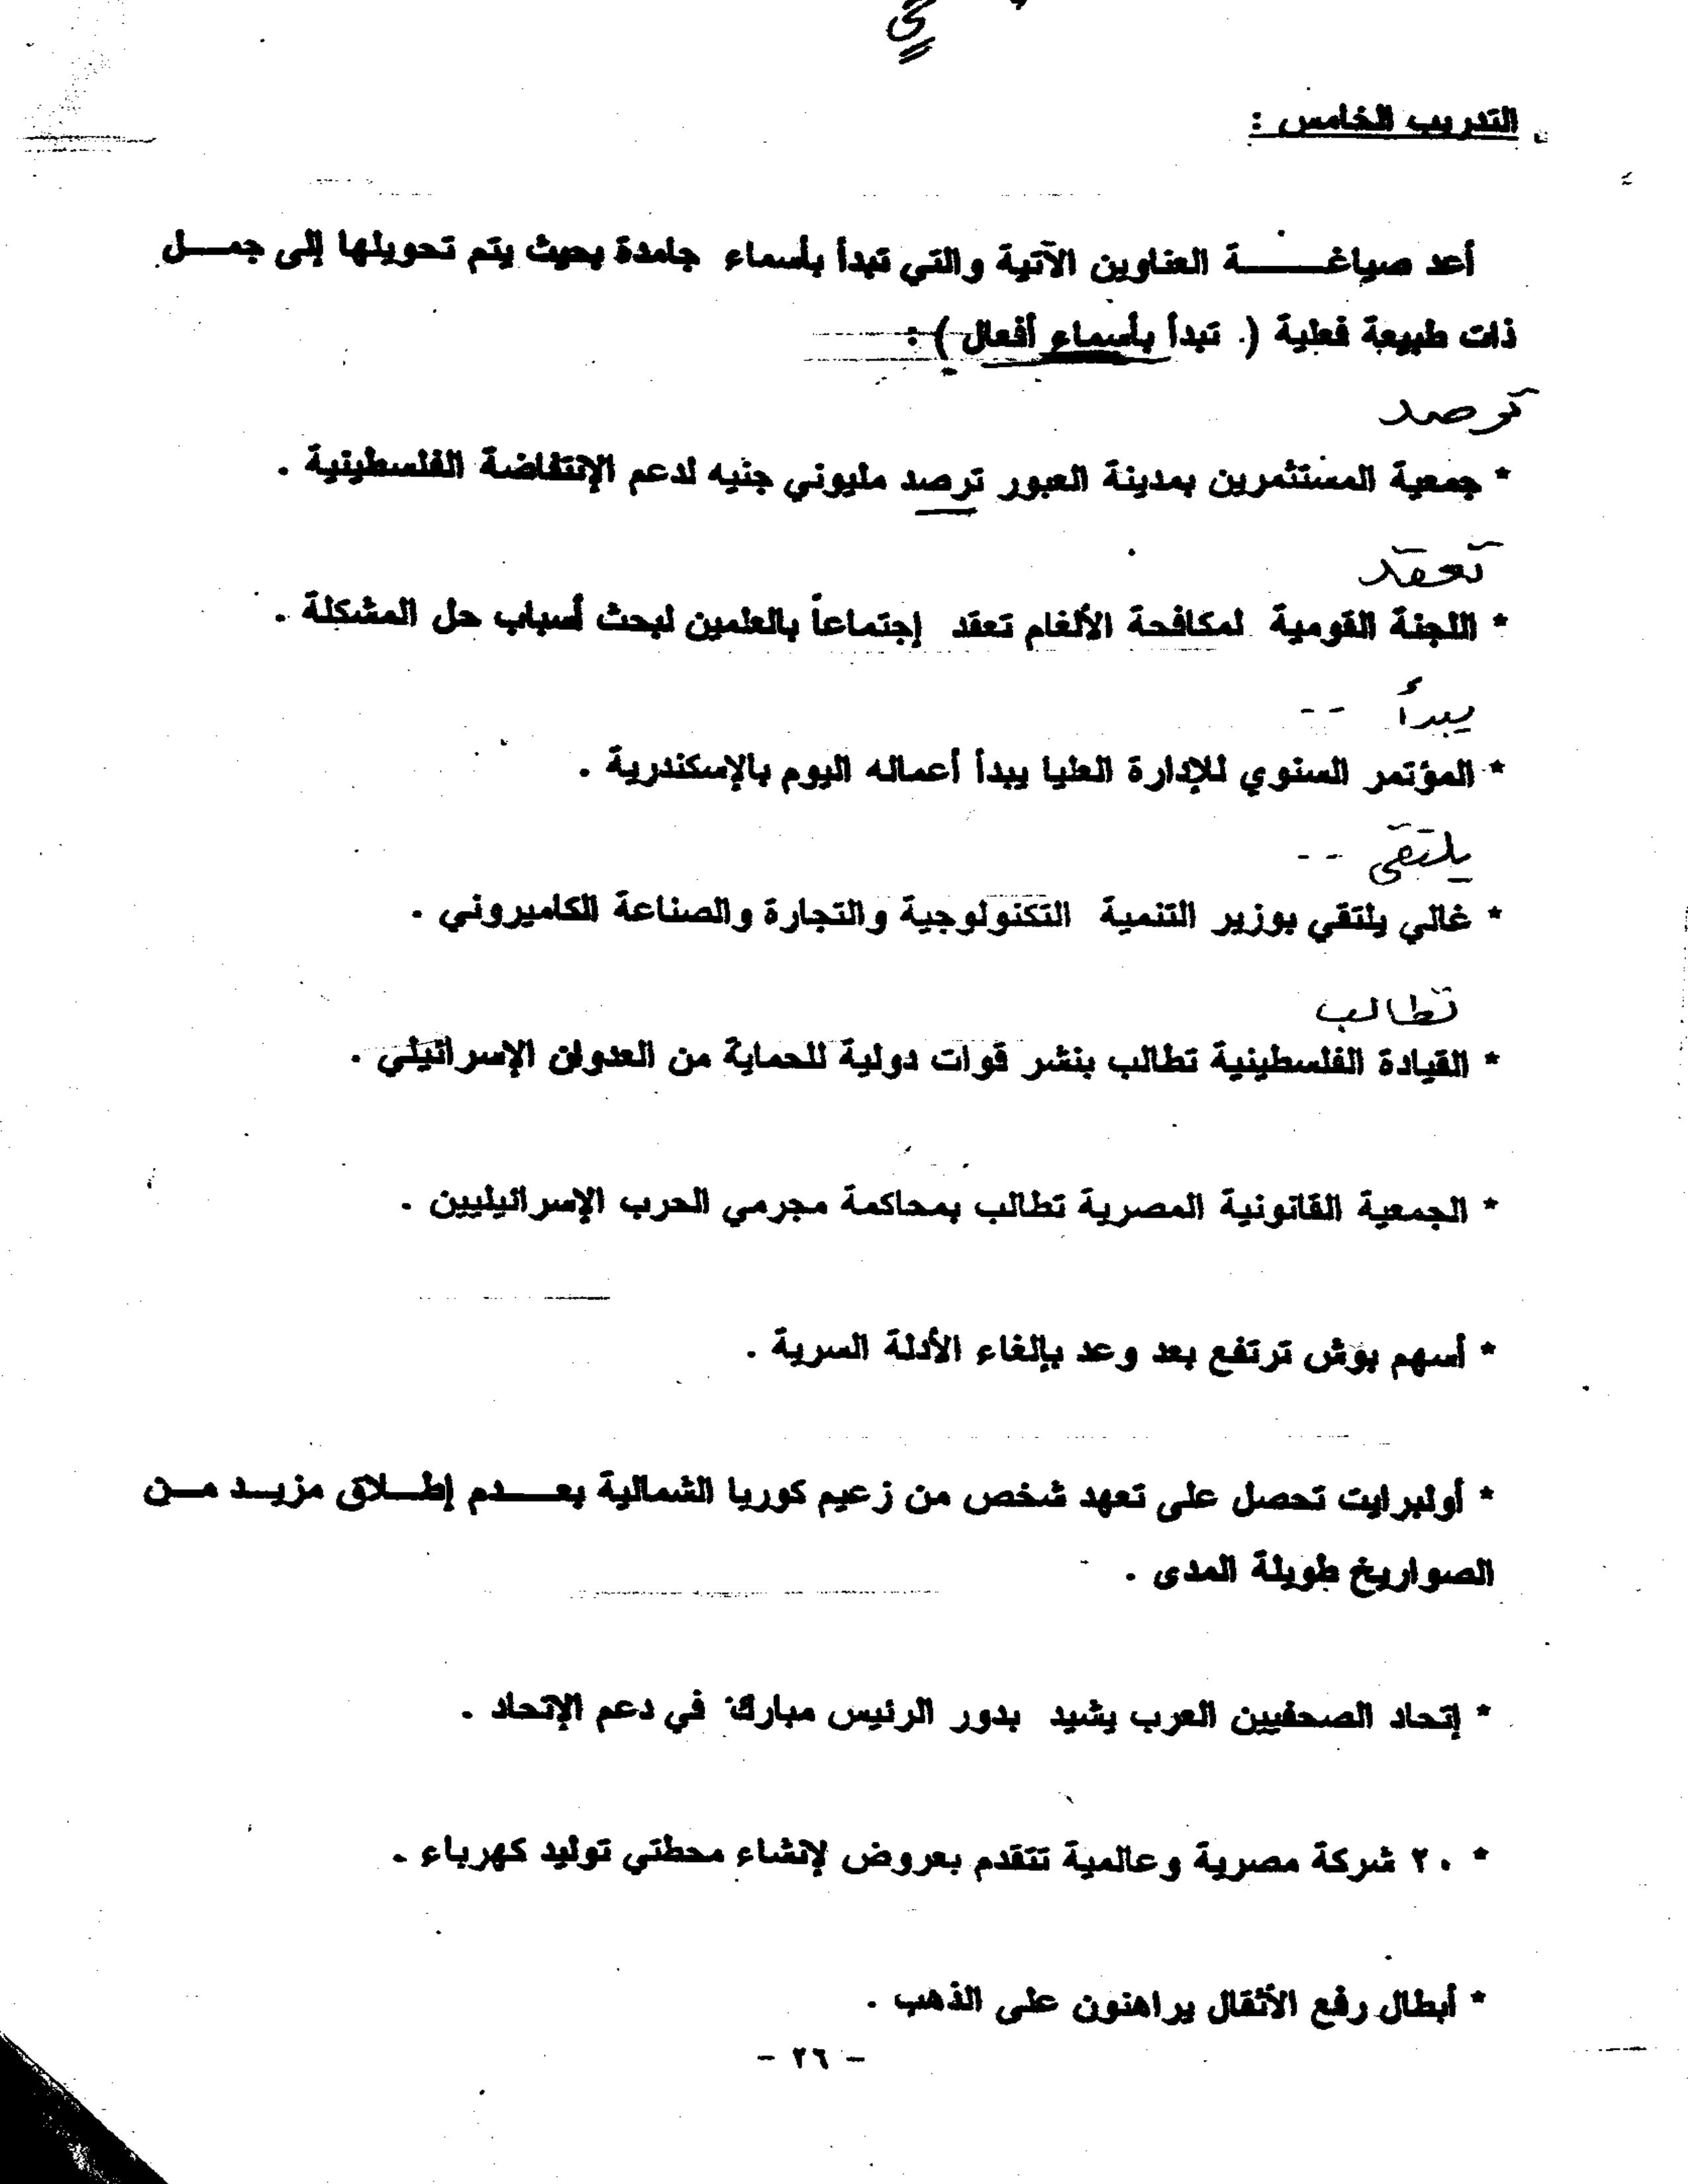 التدريب الخامس :
أعد صياغة العناوين الآتية والتي تبدأ بأسماء جامدة بحيث يتم تحويلها إلى جمل
ذات طبيعة فعلية ( تبدأ بأسماء أفعال ) :
ترصد
* جمعية المستثمرين بمدينة العبور ترصد مليوني جنيه لدعم الإنتفاضة الفلسطينية .
تعقد
* اللجنة القومية لمكافحة الألغام تعقد إجتماعاً بالعلمين لبحث أسباب حل المشكلة .
يبدأ --
* المؤتمر السنوي للإدارة العليا يبدأ أعماله اليوم بالإسكندرية .
يلتقى --
* غالي يلتقي بوزير التنمية التكنولوجية والتجارة والصناعة الكاميروني .
تطالب
* القيادة الفلسطينية تطالب بنشر قوات دولية للحماية من العدوان الإسرائيلي .
* الجمعية القانونية المصرية تطالب بمحاكمة مجرمي الحرب الإسرائيليين .
* أسهم بوش ترتفع بعد وعد بإلغاء الأدلة السرية .
* أولبرايت تحصل على تعهد شخص من زعيم كوريا الشمالية بعدم إطلاق مزيد من
الصواريخ طويلة المدى .
* إتحاد الصحفيين العرب يشيد بدور الرئيس مبارك في دعم الإتحاد .
* ٢٠ شركة مصرية وعالمية تتقدم بعروض لإنشاء محطتي توليد كهرباء .
* أبطال رفع الأثقال يراهنون على الذهب .
- ٢٦ -